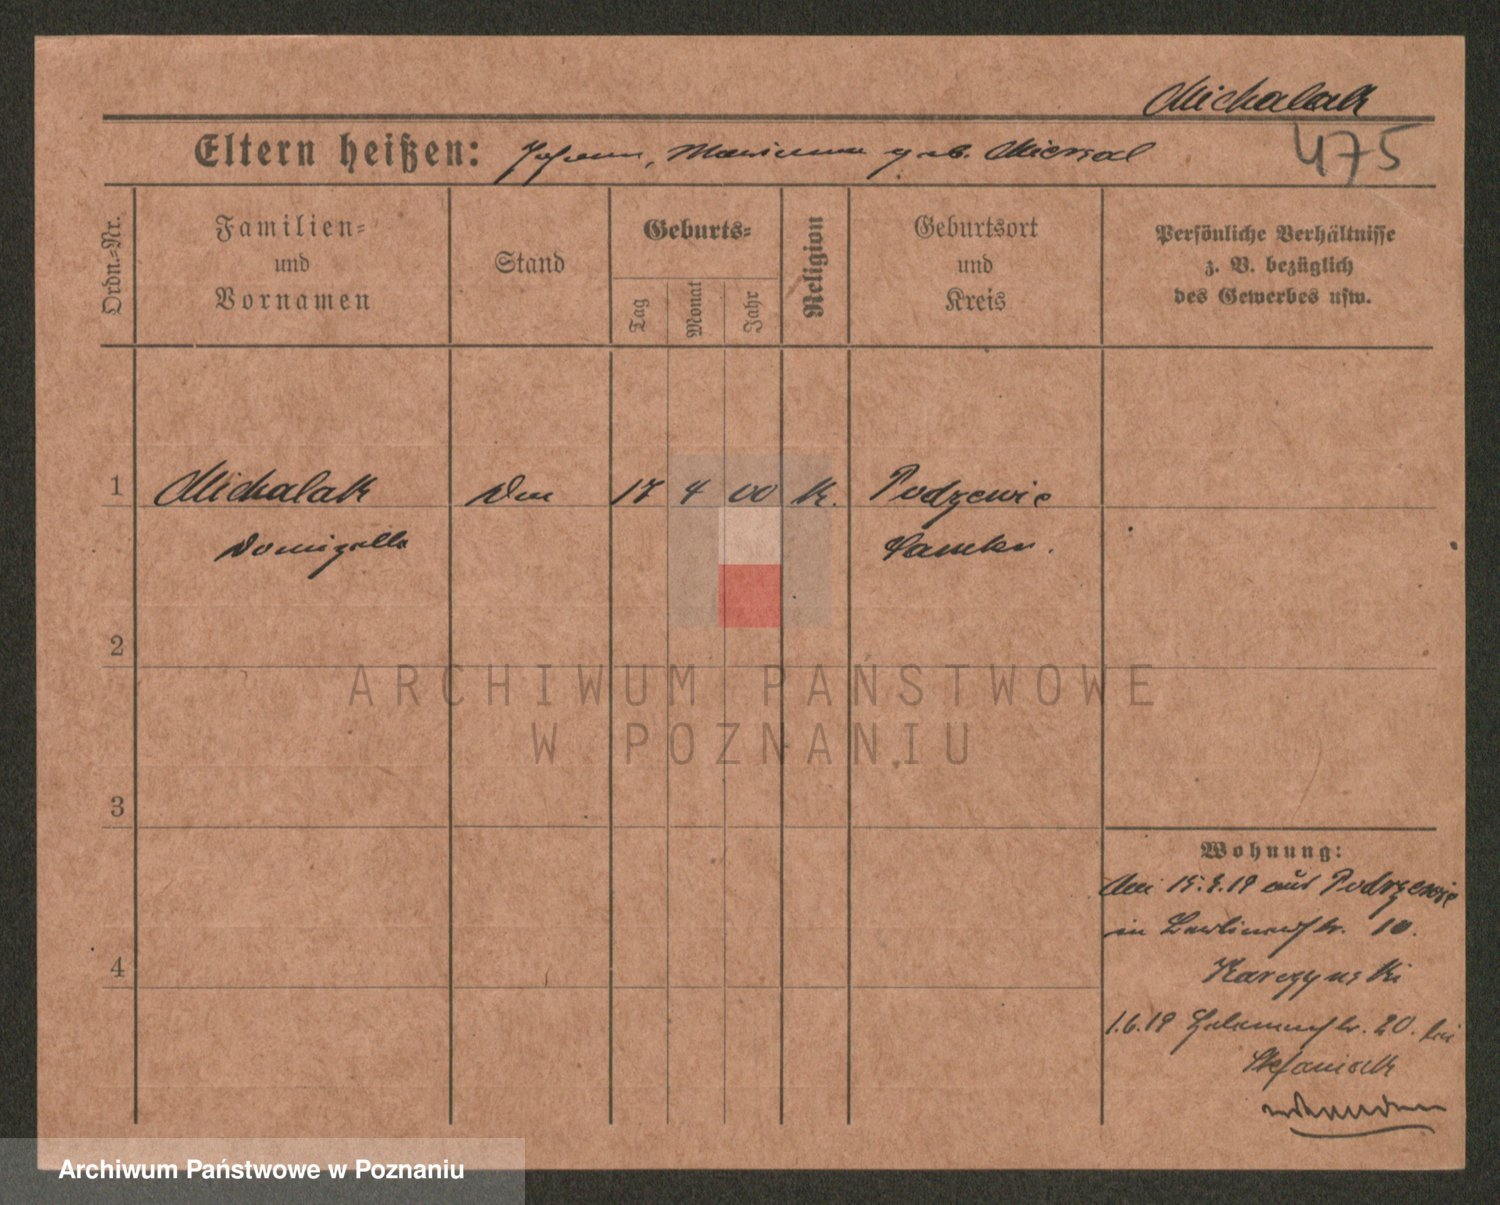 Michalak
Eltern heißen: Johann, Marianna geb. Miersal
475
Ordn.-Nr.
Familien-
und
Vornamen
Stand
Geburts-
Tag
Monat
Jahr
Religion
Geburtsort
und
Kreis
Persönliche Verhältnisse
z. B. bezüglich
des Gewerbes usw.
1 Michalak 17 4 00 K. Podrzewie
Domizella Samter.
2
3
4
Wohnung:
15.3.19 aus Podrzewie
in Berlinerstr. 10.
Karczynski
1.6.19 20. bei
Stefaniack
ARCHIWUM PAŃSTWOWE
W POZNANIU
Archiwum Państwowe w Poznaniu